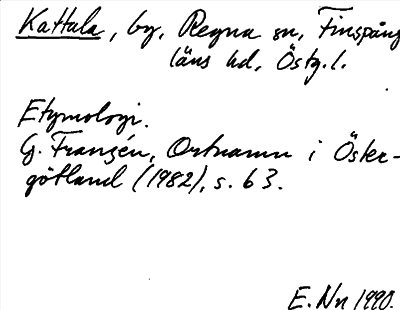 Kattala, by, Regna sn, Finspång
läns hd, Östg. l.
Etymologi.
G. Franzén, Ortnamn i Öster-
götland (1982), s. 63.
E. Nn 1990.